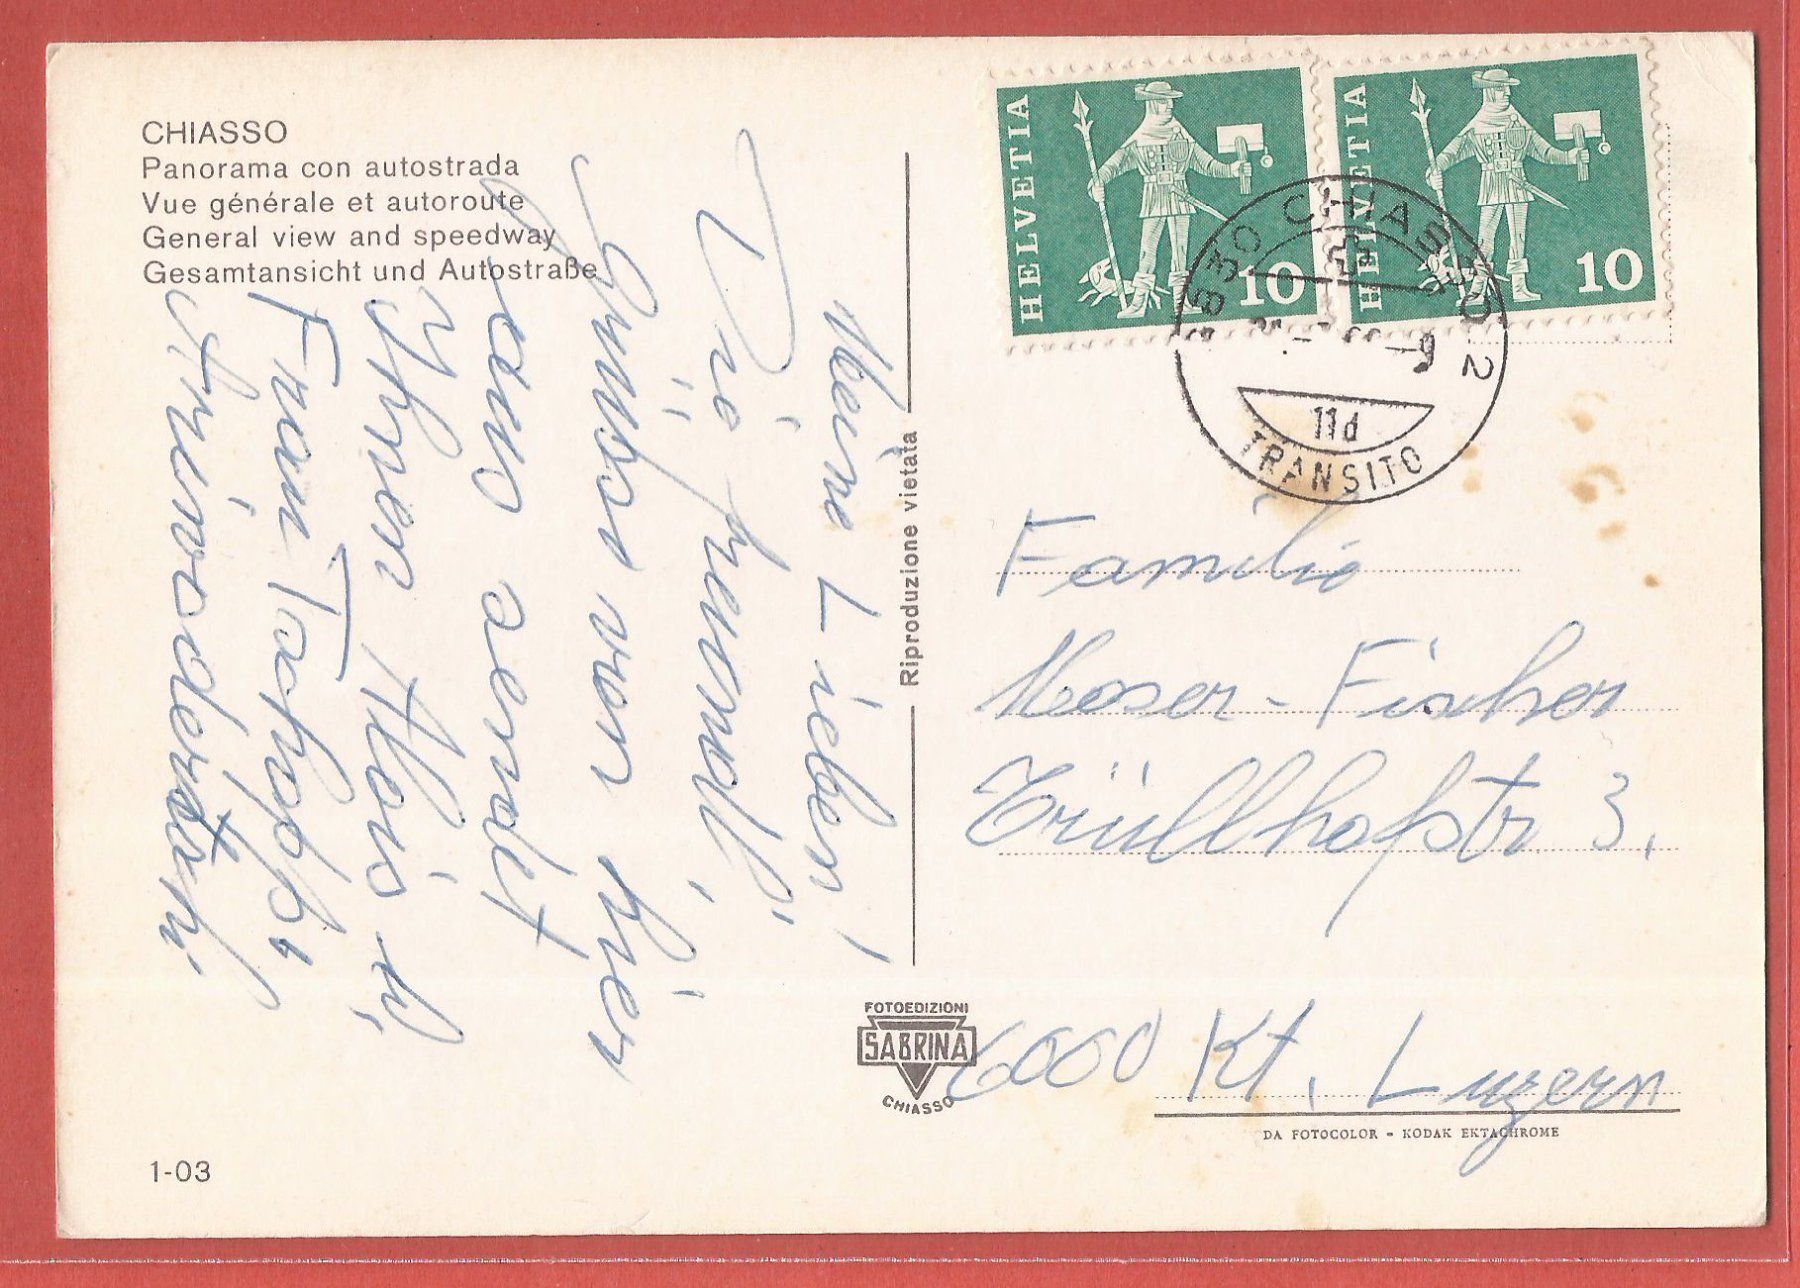 CHIASSO
Panorama con autostrada
Vue générale et autoroute
General view and speedway
Gesamtansicht und Autostraße
Meine Lieben!
Die
Grüsse von hier
aus sendet
Ihnen Alois
Frau
Riproduzione vietata
HELVETIA
10
HELVETIA
10
6830 CHIASSO 2
11d
TRANSITO
Familie
Moser-Fischer
3.
6000 Kt. Luzern
FOTOEDIZIONI
SABRINA
CHIASSO
DA FOTOCOLOR - KODAK EKTACHROME
1-03